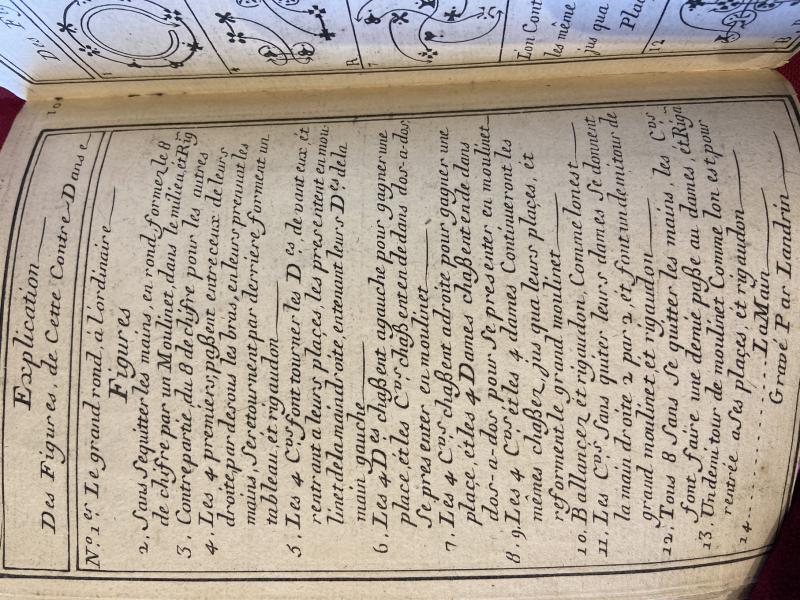 104
Explication
Des Figures, de Cette Contre Danse
No. 1.er Le grand rond, à Lordinaire
Figures
2. Sans se quitter les mains, en rond, former le 8
de chifre par un Moulinet, dans le milieu, et Rig
3. Contrepartie du 8 de chifre pour les autres
4. Les 4 premiers, paßent entre ceux de leurs
droite, par desous les bras, en leurs prenant les
mains, Se retournent par derriere forment un
tableau, et rigaudon
5. Les 4 C.rs font tourner les D.es de vant eux, et
rentrant a leurs places, les presentent en mou-
linet de la main droite, en tenant leurs D.es de la
main gauche
6. Les 4 D.es chaßent agauche pour gagner une
place, et les C.rs chaßent en dedans dos-a-dos;
Se presenter en moulinet
7. Les 4 C.rs chaßent adroite pour gagner une
place, et les 4 Dames chaßent en de dans
dos-a-dos pour Se presenter en moulinet
8. 9. Les 4 C.rs et les 4 dames Continueront les
mêmes chaßez, jus qua leurs places, et
reforment le grand moulinet
10. Ballancez et rigaudon, Comme lon est
11. Les C.rs Sans quiter leurs dames Se donnent
la main droite 2 par 2 et font un demi tour de
grand moulinet et rigaudon
12. Tous 8 Sans Se quitter les mains, les C.rs
font faire une demie paße au dames, et Rign
13. Un demi tour de moulinet Comme lon est pour
rentrée a Ses places, et rigaudon
14 ........ La Main
Gravé Par Landrin
Des
1
4
R
7
Lon Cont
les même
jus qua
Plac
12